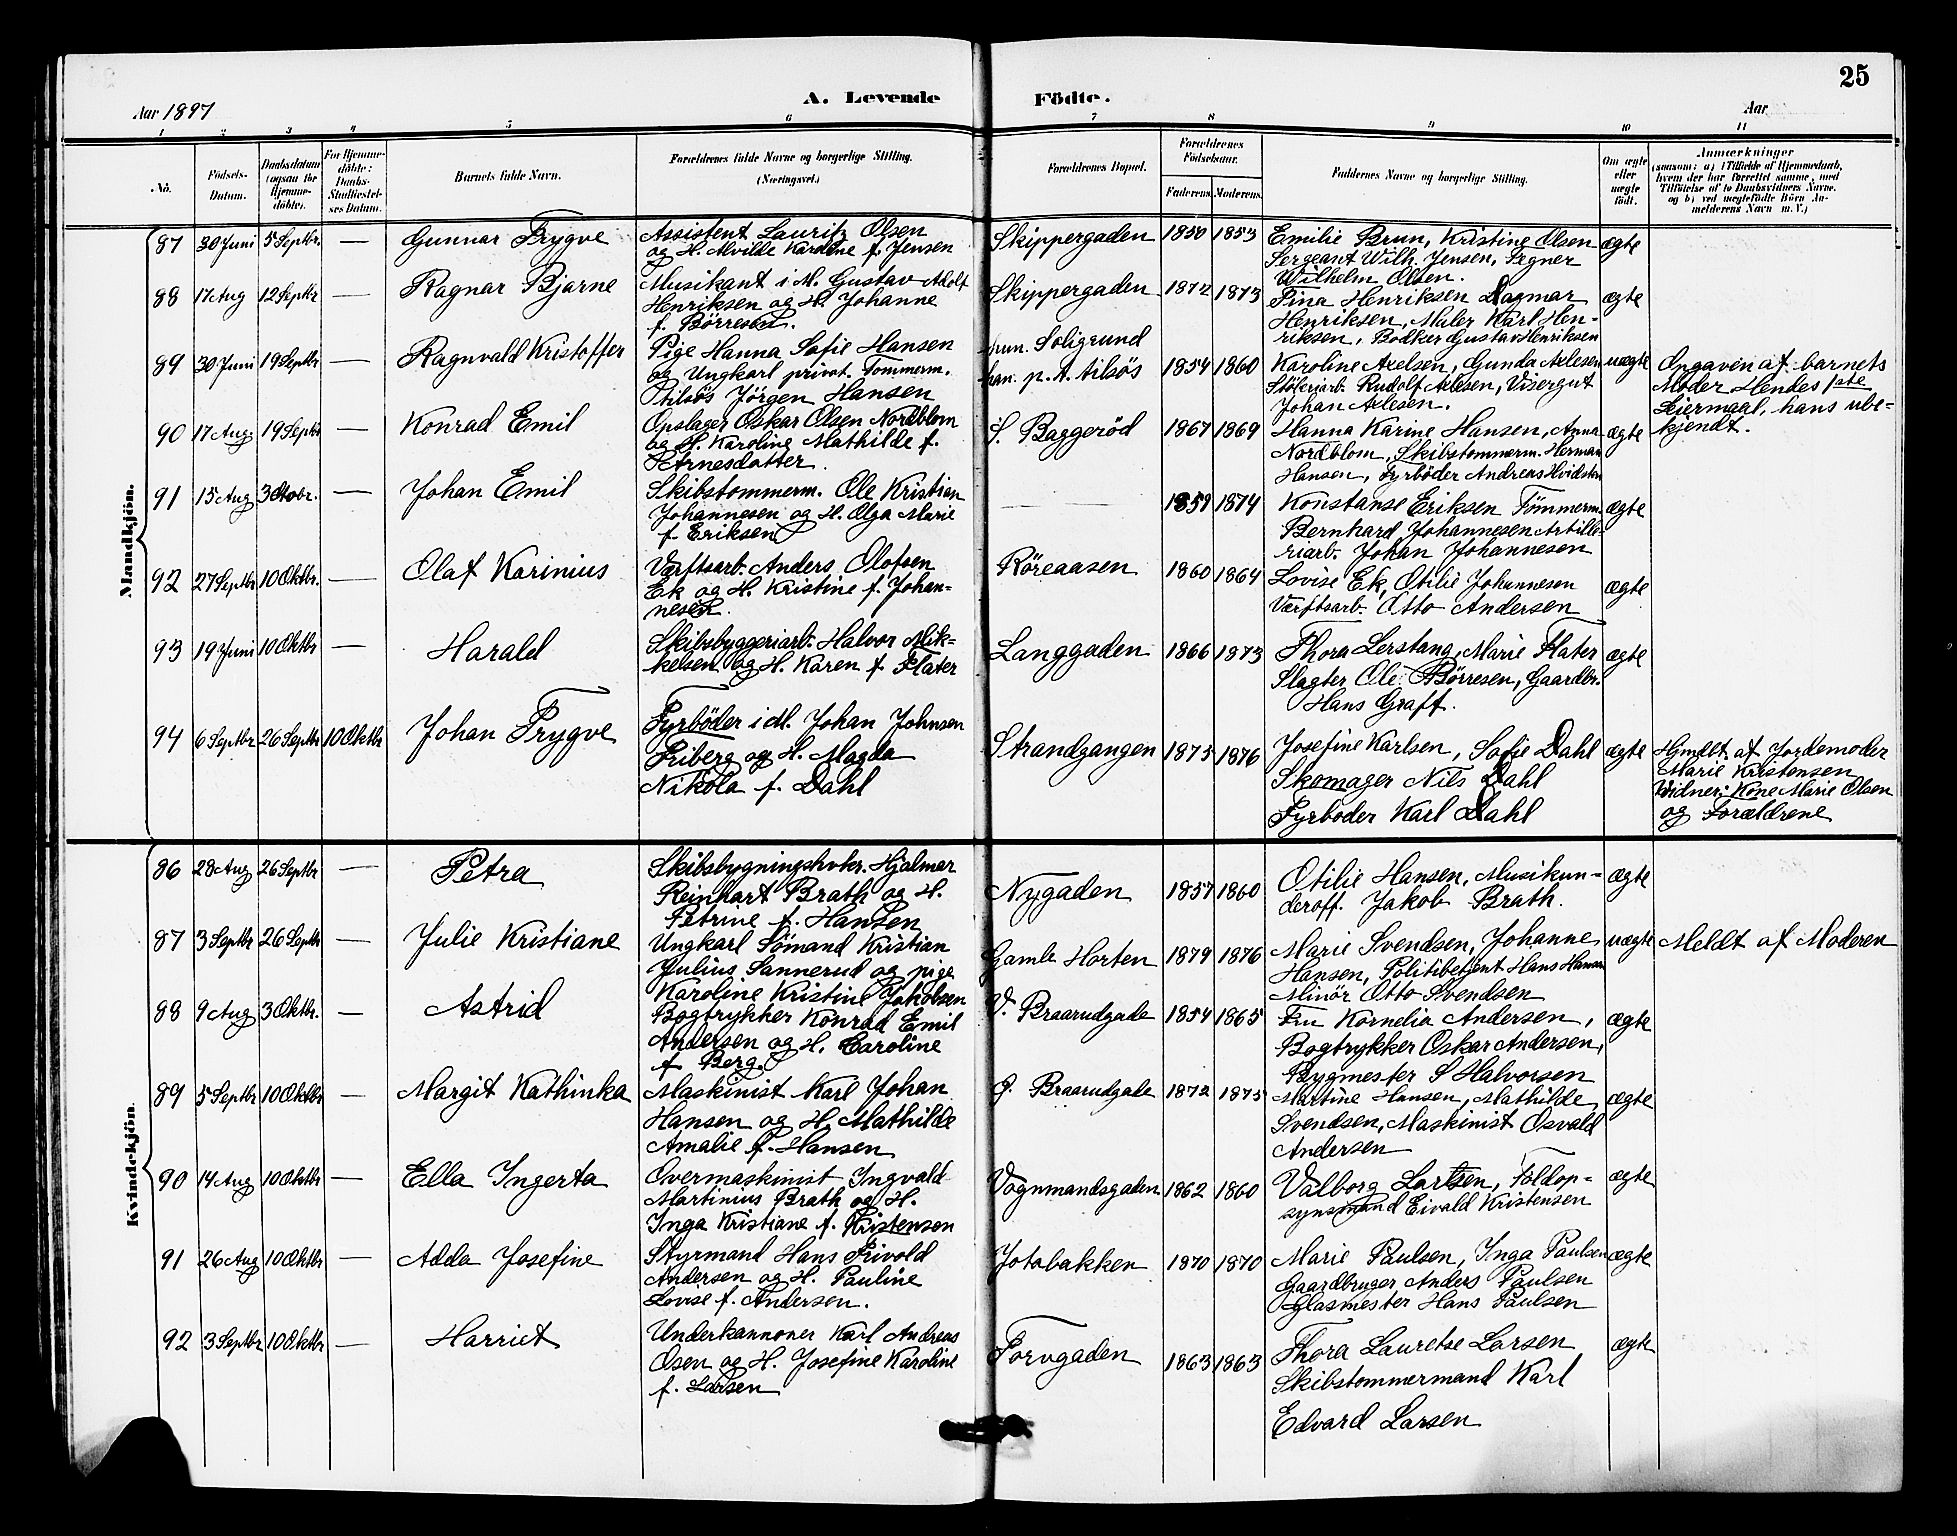 25
Aar 1897
A. Levende Födte.
Aar
1 2 3 4 5 6 7 8 9 10 11
No.
Födsels-Datum.
Daabsdatum (ogsaa for Hjemme-döbte).
For Hjemme-döbte: Daabs-Stadfæstel-ses Datum.
Barnets fulde Navn.
Forældrenes fulde Navne og borgerlige Stilling. (Næringsvei.)
Forældrenes Bopæl.
Forældrenes Födselsaar.
Faderens. Moderens.
Faddernes Navne og borgerlige Stilling.
Om ægte eller uægte födt.
Anmærkninger
(saasom: a) i Tilfælde af Hjemmedaab, hvem der har forrettet samme, med Tilföielse af to Daabsvidners Navne, og b) ved uægtefödte Börn An-melderens Navn m. V.)
Mandkjön.
87 30 Juni 5 Septbr. — Gunnar Trygve
Assistent Lauritz Olsen
og H. Alvilde Karoline f. Jensen
Skippergaden 1850 1853
Emilie Brun, Kristine Olsen
Sergeant Wilh. Jensen, Tegner
Wilhelm Olsen.
ægte
88 17 Aug 12 Septbr — Ragnar Bjarne
Musikant i M. Gustav Adolf
Henriksen og H. Johanne
f. Börresen.
Skippergaden 1872 1873
Tina Henriksen Dagmar
Henriksen, Maler Karl Hen-
riksen, Bödker Gustav Henriksen
ægte
89 30 Juni 19 Septbr — Ragnvald Kristoffer
Pige Hanna Sofie Hansen
og Ungkarl privat. Tommerm.
Jörgen Hansen
hun. Soligrund
han. p. t. tilsös 1854 1860
Karoline Axelsen, Gunda Axelsen
Rudolf Axelsen, Visergut
Johan Axlesen.
uægte
Opgaven af barnets
Moder Hendes 1ste
Leiermaal, hans ube-
kjendt.
90 17 Aug. 19 Septbr — Konrad Emil
Opslager Oskar Olsen Nordblom
og H. Karoline Mathilde f.
Arnesdatter.
S. Baggeröd 1867 1869
Hanna Karine Hansen, Anna
Nordblom, Skibstommerm. Herman
Hansen, Fyrböder Andreas Hvidsten
ægte
91 15 Aug 3 Oktobr. — Johan Emil
Skibstommerm. Ole Kristian
Johannesen og H. Olga Marie
f Eriksen
— — 1859 1874
Konstanse Eriksen Tömmerm.
Bernhard Johannesen Artille-
riarb. Johan Johannesen
ægte
92 27 Septbr 10 Oktbr. — Olaf Karinius
Værftsarb. Anders Olofsen
Ek og H. Kristine f. Johan-
nesen.
Röreaasen 1860 1864
Lovise Ek, Otilie Johannesen
Værftsarb. Otto Andersen
ægte
93 19 Juni 10 Oktbr — Harald
Skibsbyggeriarb. Halvor Mik-
kelsen og H. Karen f. Flater
Langgaden 1866 1873
Thora Lerstang, Marie Flater
Slagter Ole Börresen, Gaardbr.
Hans Graff.
ægte
94 6 Septbr 26 Septbr 10 Oktbr Johan Trygve
Fyrböder i M. Johan Johnsen
Friberg og H. Magda
Nikola f. Dahl
Strandgangen 1873 1876
Josefine Karlsen, Sofie Dahl
Skomager Nils Dahl
Fyrboder Karl Dahl
ægte
Hjmdbt. af Jordemoder
Marie Kristensen
Vidner: Kone Marie Olsen
og Forældrene
Kvindekjön.
86 28 Aug 26 Septbr — Petra
Skibsbygningskvkr. Hjalmar
Reinhart Brath og H.
Petrine f. Hansen
Nygaden 1857 1860
Otilie Hansen, Musikun-
deroff. Jakob Brath.
ægte
87 3 Septbr 26 Septbr — Julie Kristiane
Ungkarl Sömand Kristian
Julius Sannerud og pige
Karoline Kristine Jakobsen
Gamle Horten 1879 1876
Marie Svendsen, Johanne
Hansen, Politibetjent Hans Hansen
Minör Otto Svendsen
uægte
Meldt af Moderen
88 9 Aug 3 Oktbr. — Astrid
Bogtrykker Konrad Emil
Andersen og H. Caroline
f Berg.
V. Braarudgade 1854 1865
Fru Kornelia Andersen,
Bogtrykker Oskar Andersen,
Bygmester S Halvorsen
ægte
89 5 Septbr 10 Oktbr — Margit Kathinka
Maskinist Karl Johan
Hansen og H. Mathilde
Amalie f. Hansen
Ö. Braarudgade 1872 1875
Martine Hansen, Mathilde
Svendsen, Maskinist Osvald
Andersen
ægte
90 14 Aug 10 Oktbr — Ella Ingerta
Overmaskinist Ingvald
Martinius Brath og H.
Inga Kristiane f. Kristensen
Vognmandsgaden 1862 1860
Valborg Larsen, Toldop-
synsmand Eivald Kristensen
ægte
91 26 Aug 10 Oktbr — Adda Josefine
Styrmand Hans Frivold
Andersen og H. Pauline
Lovise f. Andersen.
Jotobakken 1870 1870
Marie Paulsen, Inga Paulsen
Gaardbruger Anders Paulsen
Glasmester Hans Paulsen
ægte
92 3 Septbr 10 Oktbr — Harriet
Underkannoner Karl Andreas
Osen og H. Josefine Karoline
f. Larsen
Torvgaden 1863 1863
Thora Lauretse Larsen
Skibstommermand Karl
Edvard Larsen
ægte